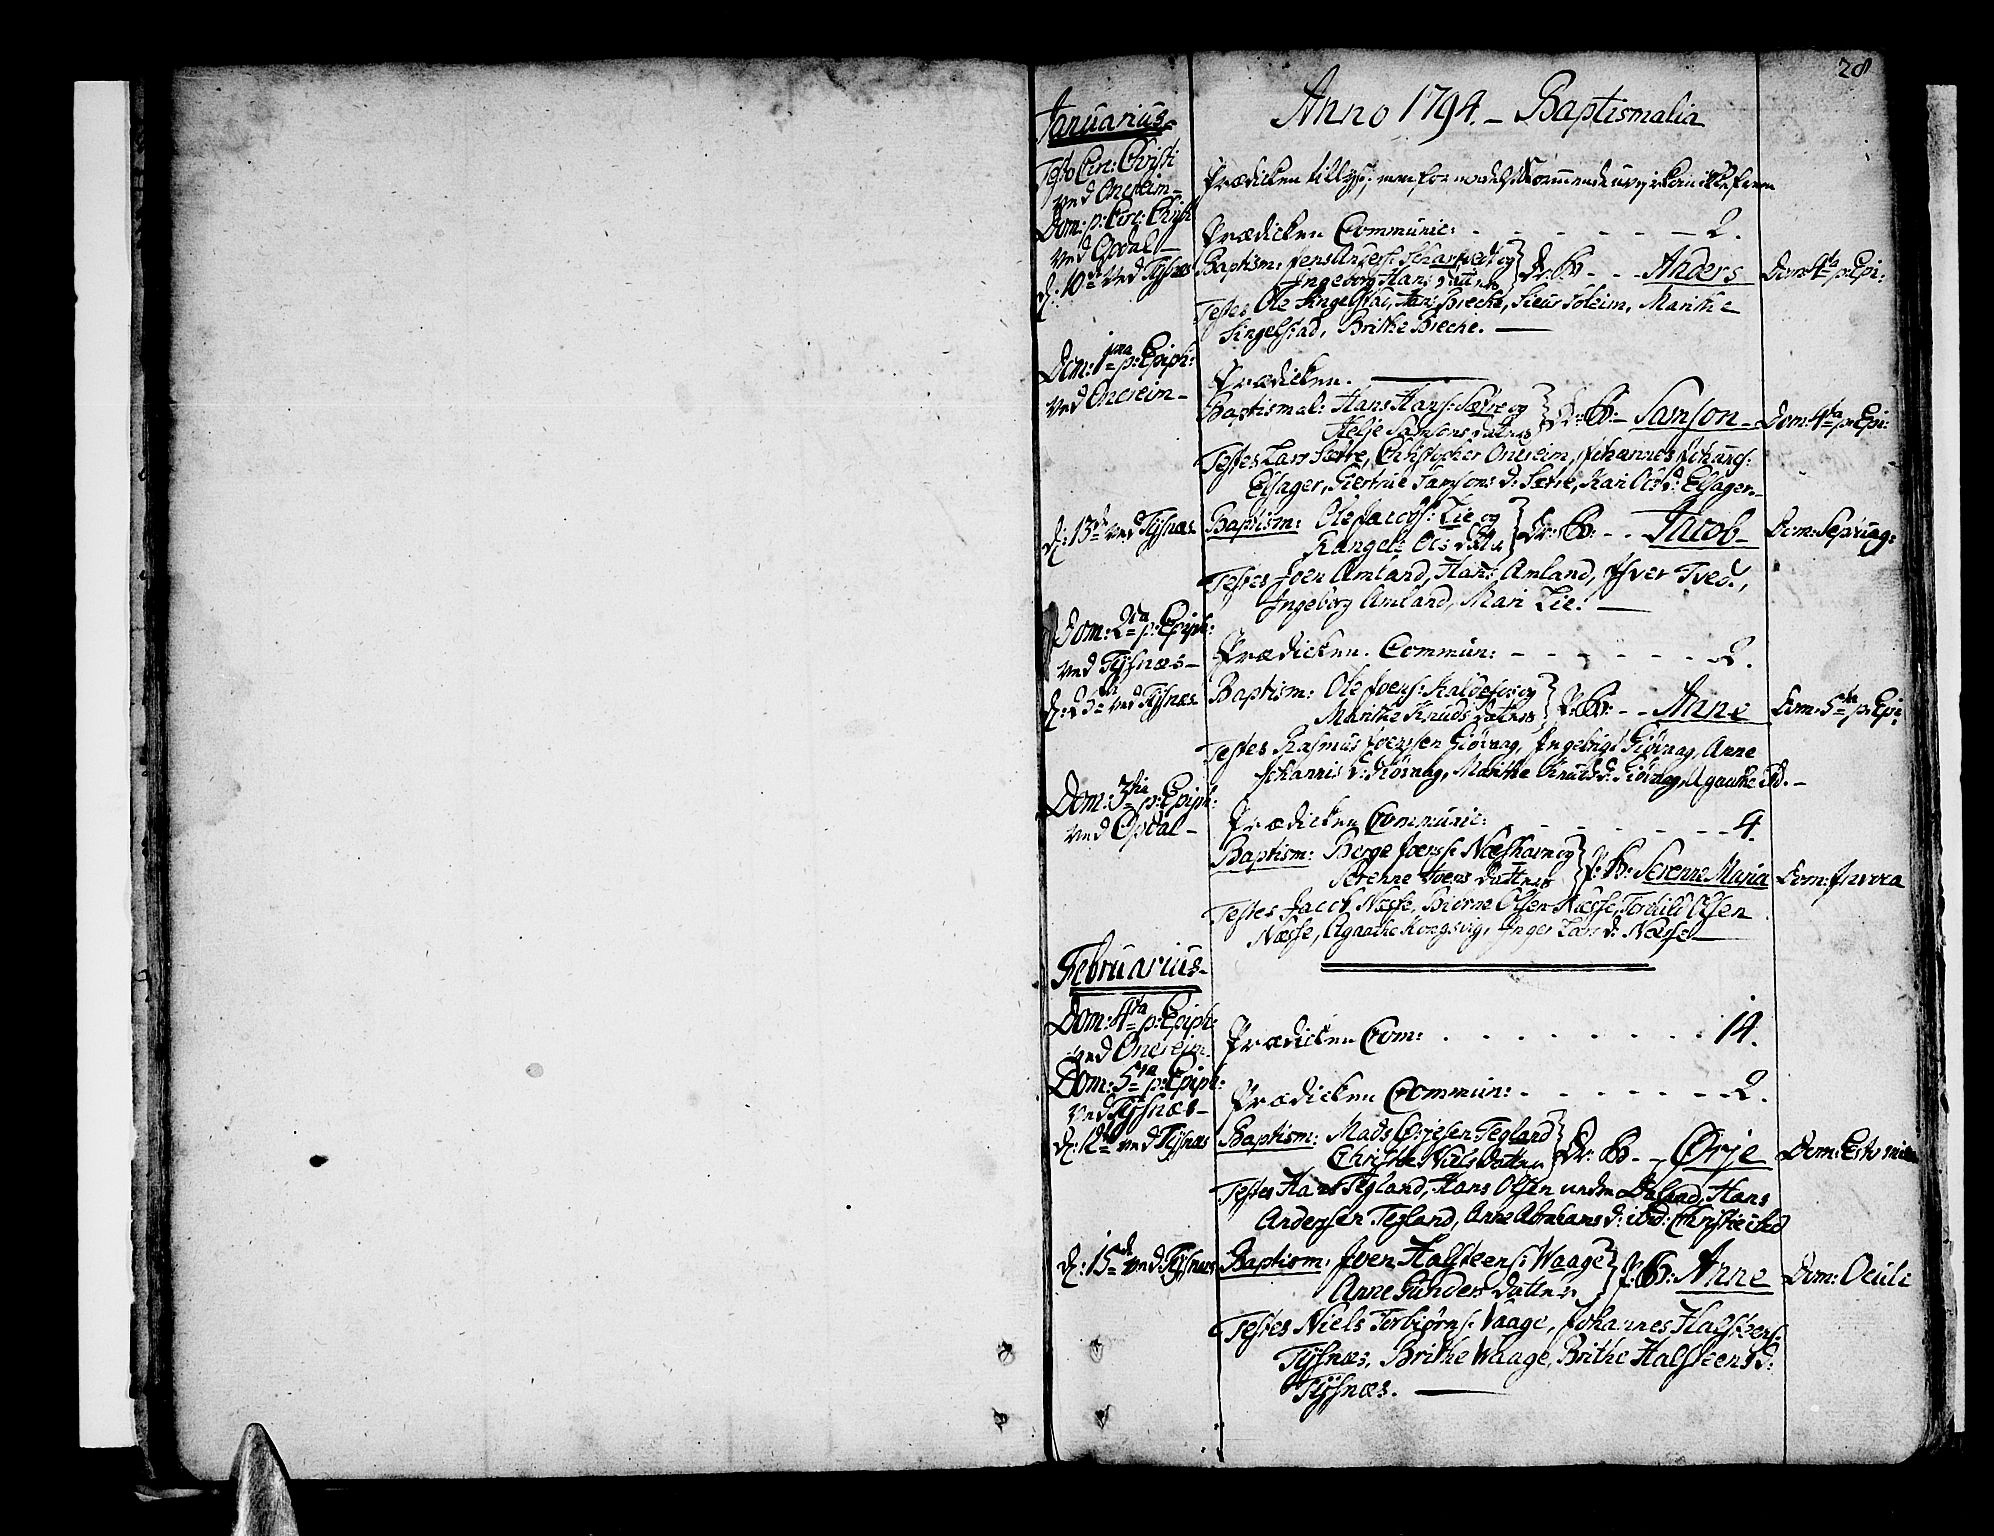 28
Anno 1794. – Baptismalia
Januarius
Festo Circ: Christi
ved Onereim –
Prædicken tillyst, men
Dom: p: Circ: Christi
ved Opdal –
Prædicken Communic: - - - - - - 2.
d: 10de ved Tysnæs
Baptism: Jens Anders: og
Ingeborg Hans datter } Dr: B: - - Anders
Dom: 4ta p: Epi:
Testes Ole Singelstad, Hans Breche, Siur Soleim, Marithe
Singelstad, Brithe Breche. —
Dom: 1ma p: Epiph:
ved Onereim –
Prædicken. —
Baptismal: Hans Hans: Sætre og
Helje Samsons datter } Dr: B: – Samson –
Dom: 4ta p: Epi:
Testes Lars Sætre, Christopher Onereim, Johannes Johans:
Elsager, Giertrue Samsons d: Sætre, Kari Ols d: Elsager. –
d: 13de ved Tysnæs
Baptism: Ole Jacobs: Lie og
Rangele Ols datter } Dr: B: - - Jacob –
Dom: Septuag:
Testes Joen Amland, Hans Amland, Iver Tved.,
Ingeborg Amland, Mari Lie. —
Dom: 2da p: Epiph:
ved Tysnæs –
Prædicken. Commun: - - - - - - 2.
d: 23de ved Tysnæs
Baptism: Ole Joens: Kaldefos og
Marithe Knuds datter } P: B: - - Anne
Dom: 5ta p: Epi:
Testes Rasmus Joenssen Giøvaag, Ingebrigt Giøvaag, Anne
Johannis d: Giøvaag, Marithe Knuds d: Giøvaag, Agaathe ibd. –
Dom: 3tia p: Epiph:
ved Opdal –
Prædicken Communic: - - - - - - 4.
Baptism: Børge Joens: Næshavn og
Serenne Joens datter } P: B: Serenne Maria
Dom: Invoca
Testes Jacob Næsse, Biørne Olsen Næsse, Tordild Olsen
Næsse, Agaathe Kongsvig, Inger Lars d: Næsse —
Februarius
Dom: 4ta p: Epiph:
ved Onereim.
Prædicken Com: . - - - - - - 14.
Dom: 5ta p: Epiph:
ved Tysnæs –
Prædicken Commun: - - - - - - 2.
d: 12te ved Tysnæs
Baptism: Mads Ørjesen Tegland
Christie Niels datter } Dr: B: - - Ørje
Dom: Esto mihi
Testes Hans Tegland, Hans Olsen Daland, Hans
Andersen Tegland, Anne Abrahams d: ibid: Christie ibid
d: 15de ved Tysnæs
Baptism: Joen Halsteens: Waage
Anne Gunders datter } P: B: Anne
Dom: Oculi
Testes Niels Torbiørns: Waage, Johannes Halsteens:
Tysnæs, Brithe Waage, Brithe Halsteens D:
Tysnæs. —